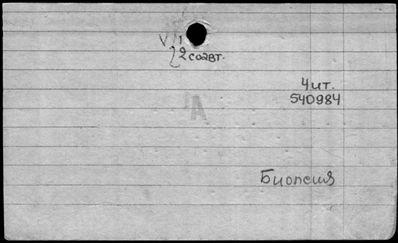 V 1
2 соавт.
4 ит.
540984
А
Биопсия